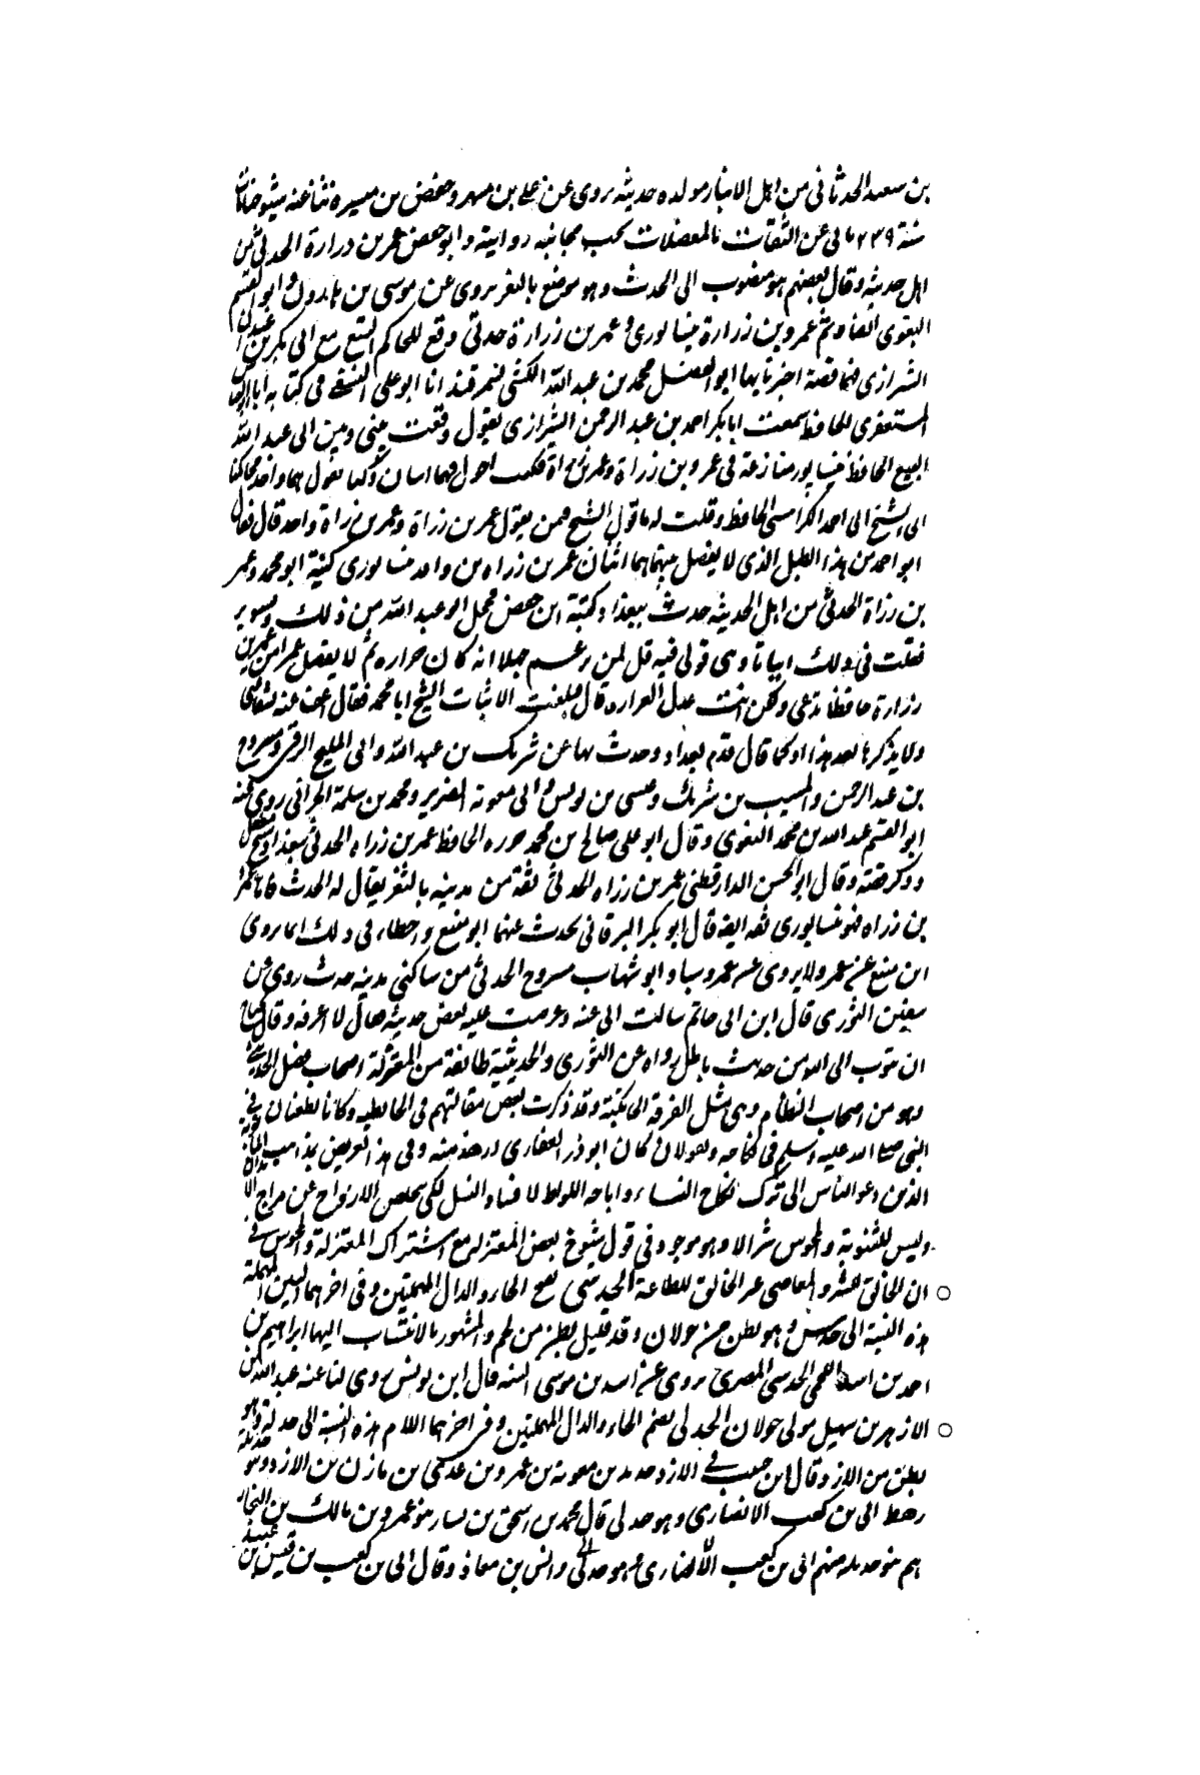 بن سعيد الحدثاني من اهل الانبار مولده حديثه يروى عن على بن مسهر وحفص بن ميسرة ثنا عنه شيوخنا مات
سنة ٢٣٩ ياتى عن الثقات بالمعضلات يجب مجانبة روايته وابو حفص عمر بن زرارة الحدثى من
اهل حديثه وقال بعضهم هو منسوب الى الحدث وهو موضع بالثغر يروى عن موسى بن وابو القسم
البغوى ايضا وثم عمرو بن زرارة نيسابورى وعمر بن زرارة حدثى وقع للحاكم البيع مع ابى بكر بن عبدان
الشيرازى فيها قصة اخبرنا بها ابو الفضل محمد بن عبد الله الكشى بسمرقند انا ابو على النسفى فى كتابه انا ابو العباس
المستغفرى الحافظ سمعت ابا بكر احمد بن عبد الرحمن الشيرازى يقول وقعت بينى وبين ابى عبد الله
البيع الحافظ بنيسابور منازعة فى عمرو بن زرارة وعمر بن زرارة فكنت اقول هما اثنان وكان يقول هما واحد فتحاكمنا
الى الشيخ ابى احمد الكرابيسى الحافظ وقلت له ما قول الشيخ فيمن يقول عمر بن زرارة وعمرو بن زرارة واحد قال فقال
ابو احمد من هذا الطبل الذى لا يفصل بينهما هما اثنان عمرو بن زرارة بن واقد نيسابورى كنيته ابو محمد وعمر
بن زرارة الحدثى من اهل الحديثه حدث ببغداد وكنيته ابو حفص فخجل ابو عبد الله من ذلك
فقلت فى ذلك ابياتا وهى قولى فيه قل لمن زعم جهلا انه كان لا يفصل عمرا من عمر بن
زرارة حافظا تدعى ولكن انت عدل الغراره قال فبلغت الابيات الشيخ ابا محمد فقال اعف عنه
ولا يذكر بها بعد هذا او كما قال قدم بغداد وحدث بها عن شريك بن عبد الله وابى المليح الرقى ومسروح
بن عبد الرحمن والمسيب بن شريك وعيسى بن يونس وابى معوية الضرير ومحمد بن سلمة الحرانى روى عنه
ابو القسم عبد الله بن محمد البغوى وقال ابو على صالح بن محمد جزره الحافظ عمر بن زرارة الحدثى ببغداد شيخ مغفل
وذكر قصته وقال ابو الحسن الدارقطنى عمر بن زرارة الحدثى ثقة من مدينة بالثغر يقال له الحدث فاما عمرو
بن زرارة فهو نيسابورى ثقة ايضا قال ابو بكر البرقانى يحدث عنهما ابو منيع واخطاء فى ذلك انما روى
ابن منيع عن عمر ولا يروى عن عمرو شيا وابو شهاب مسروح الحدثى من ساكنى مدينة حدث روى عن
سفين الثورى قال ابن ابى حاتم سالت ابى عنه وعرضت عليه بعض حديثه فقال لا اعرفه وقال يحتاج
ان يتوب الى الله من حديث باطل رواه عن الثورى والحديثية طائفة من المعتزلة اصحاب فضل الحديثى
وهو من اصحاب النظام وهى مثل الفرقة الحايطية وقد ذكرت بعض مقالتهم فى الحايطيه وكانا يطعنان فى
النبى صلى الله عليه وسلم فى نكاحه ويقولان كان ابو ذر الغفارى ازهد منه وفى هذا تعريض بمذاهب المانوية
الذين دعوا الناس الى ترك نكاح النساء واباحه اللواط لافناء النسل لكى يتخلص الارواح عن مزاج
وليس للثنوية والمجوس شر الا وهو موجود فى قول شيوخ بعض المعتزله مع اشتراك المعتزلة والمجوس فى
ان الخالق للشر والمعاصى غير الخالق للطاعة ○ الحدسى بفتح الحاء والدال المهملتين وفى اخرهما السين المهملة
هذه النسبة الى حدس وهو بطن من خولان وقد قيل بطن من لخم والمشهور بالانتساب اليها ابراهيم بن
احمد بن اسد اللخمى الحدسى المصرى يروى عن اسد بن موسى السنة قال ابن يونس روى لنا عنه عبد الله بن
الازهر بن سهيل مولى خولان ○ الحدلى بضم الحاء والدال المهملتين وفى اخرهما اللام هذه النسبة الى حديلة وهو
بطن من الازد وقال ابن حبيب فى الازد حديلة بن معوية بن عمرو بن عدى بن مازن بن الازد وهو
رهط ابى بن كعب الانصارى وهو حدلى قال محمد بن اسحق بن يسار بنو عمرو بن مالك بن النجار
هم بنو حديله منهم ابى بن كعب الانصارى وهو حدلى وانس بن معاذ وقال ابى بن كعب بن قيس بن عبيد